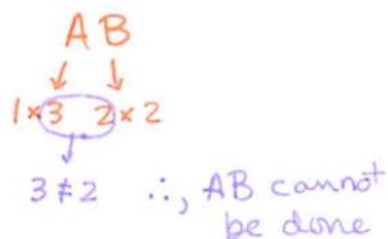 A B
1×3 2×2
3≠2 ∴, AB cannot
be done